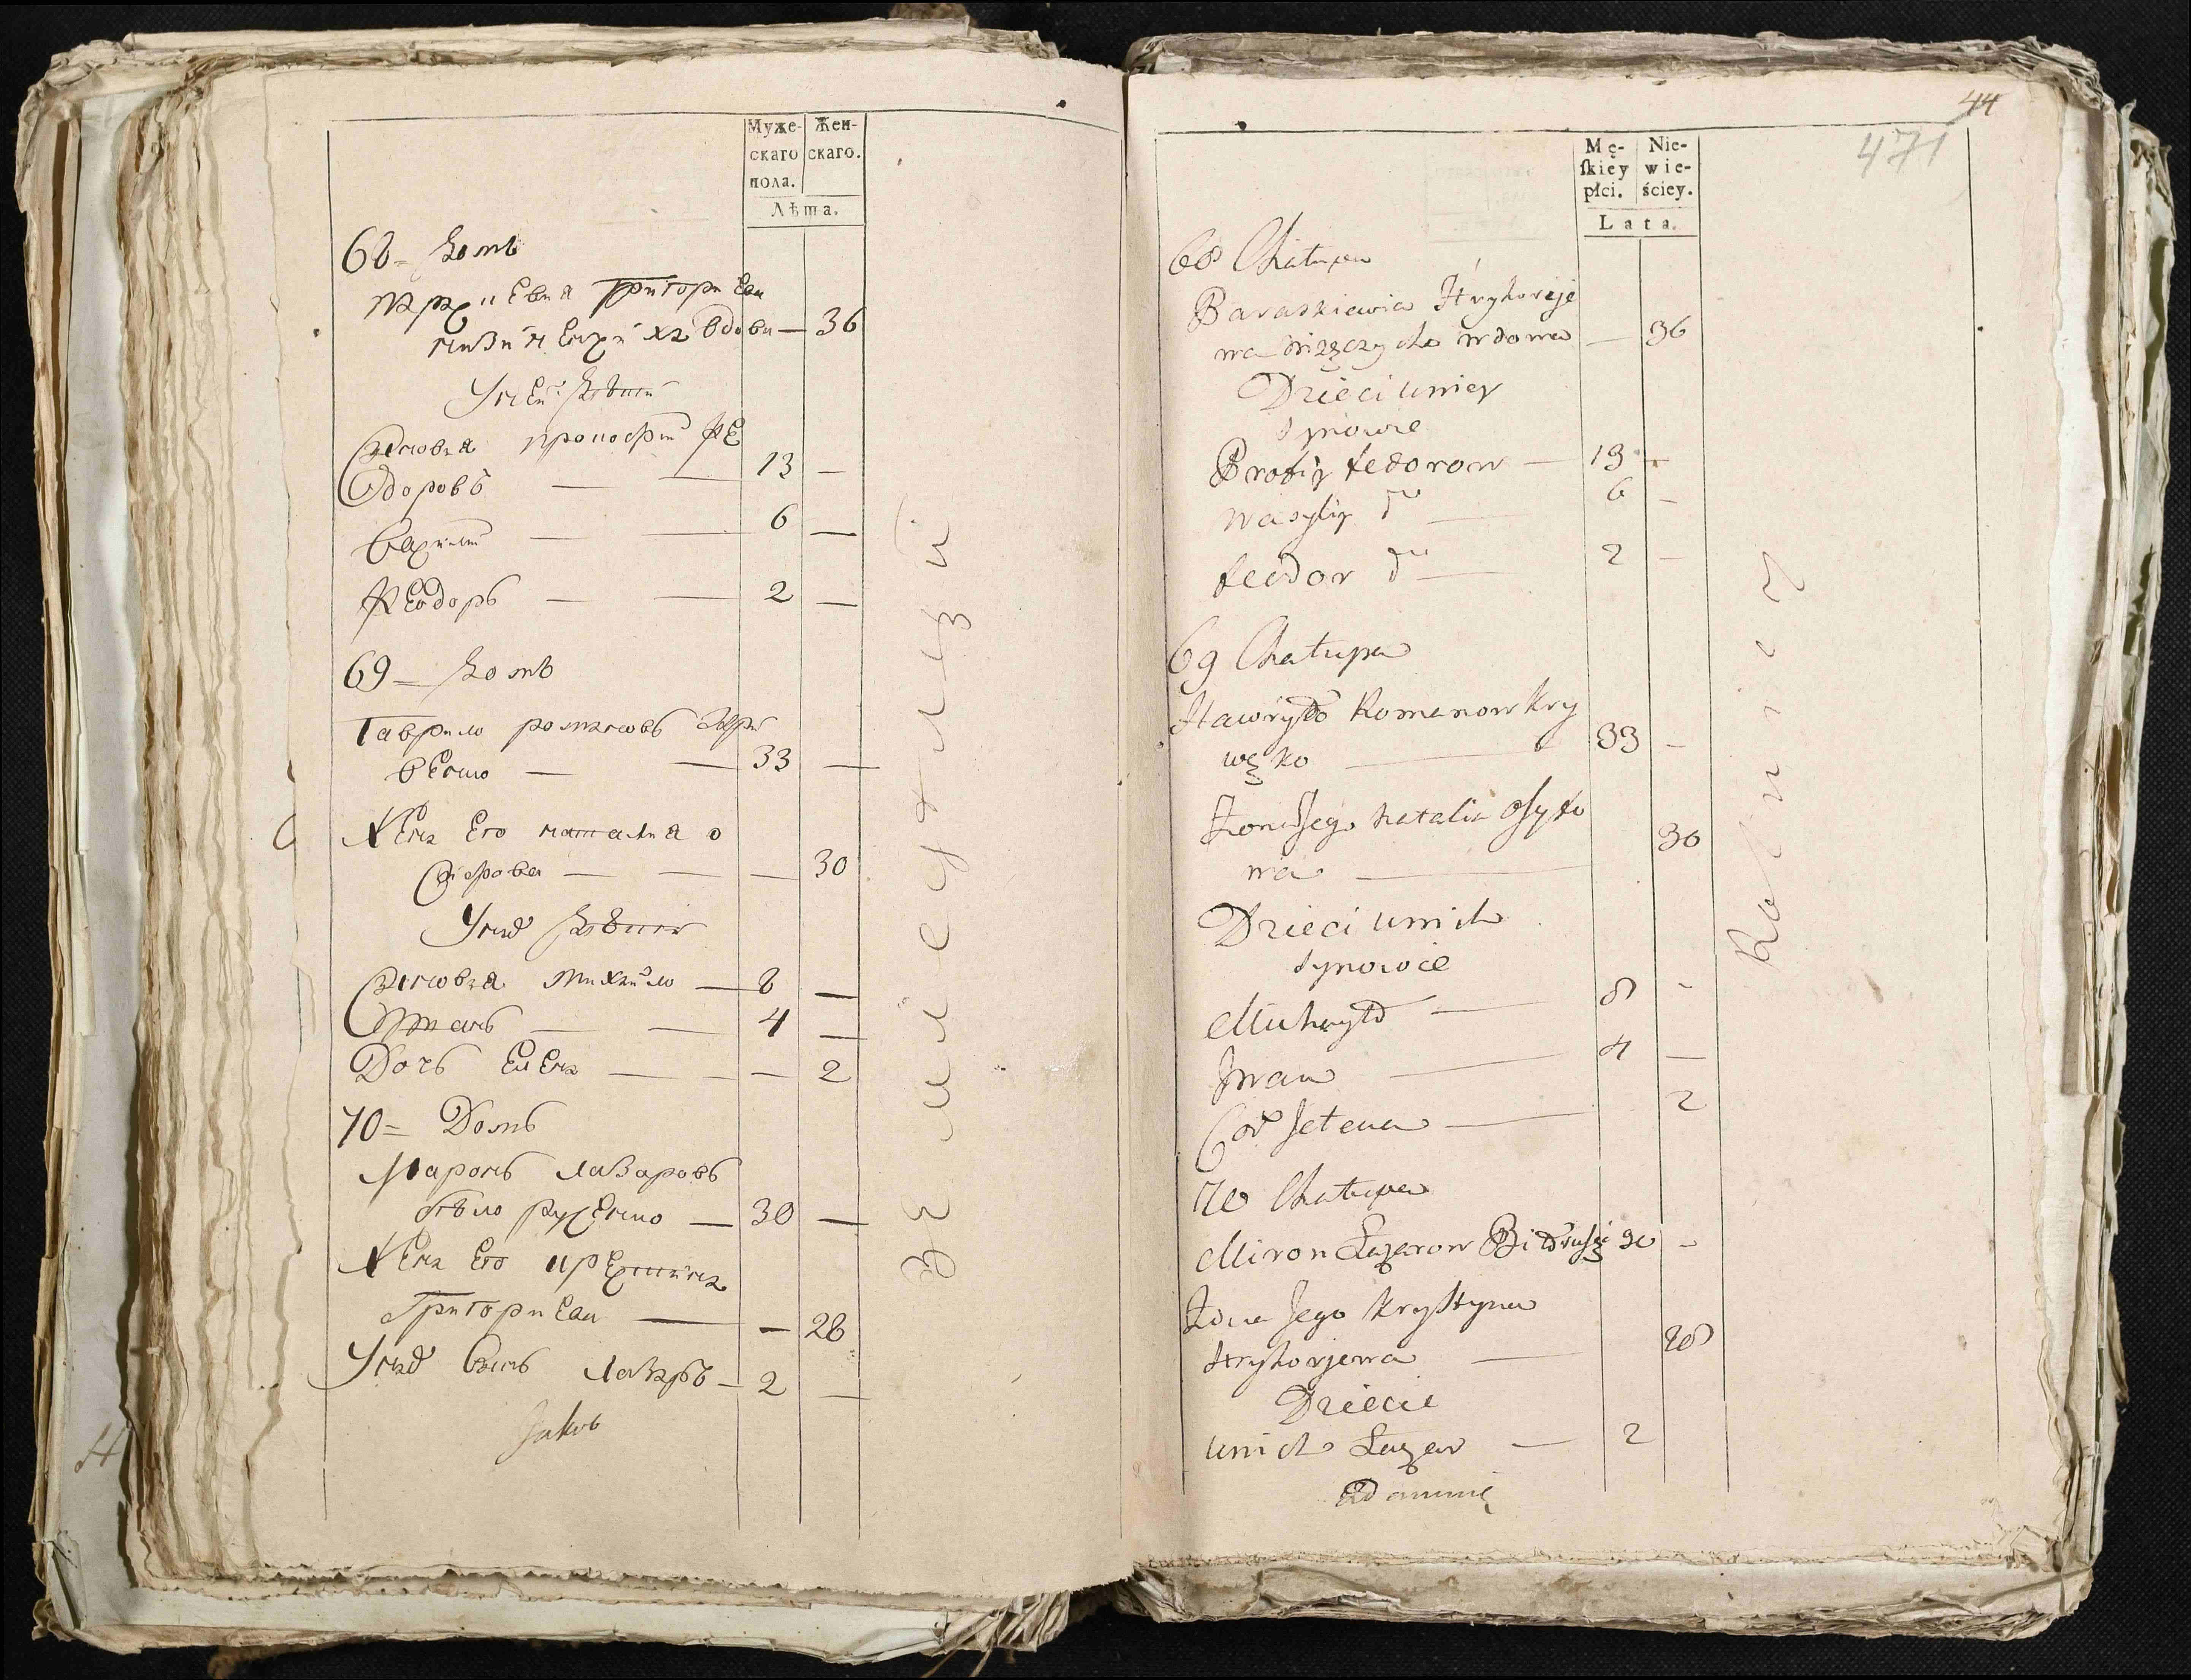 Муже- Жен-
скаго скаго.
пола.
Лѣта.
68 = Домъ
Григориева
вдова — 36
У ней дѣтей
Сыновя Прокофий Фе
одоровъ — — 13 —
Василий — — 6 —
Феодоръ — — 2 —
69 = Домъ
Гаврило Романовъ
— — 33 —
Жена Его наталия о
сипова — — — 30
У нихъ дѣтей
Сыновя Михайло — 8 —
Иванъ — — 4 —
Дочь Елена — — — 2
70 = Домъ
Миронъ Лазаровъ
— 30 —
Жена Его христина
Григориева — — 28
У нихъ Сынъ Лазаръ — 2 —
Jakob
земледелци
44
471
Mę- Nie-
skiey wie-
płci. ściey.
Lata.
68 Chałupa
Paraskiewia Hryhoreje
wa wdowa — 36
Dzieci u niey
synowie
Prokip fedorow — 13 —
wasyliy do — 6 —
feodor do — 2 —
69 Chałupa
Hawryło Romanow Kry
węko — 33 —
Żona Jego natalia Osyfo
wa — 30
Dzieci u nich
synowie
Michayło — 8 -
Jwan — 4 —
Cór Jelena — 2
70 Chałupa
Miron Łazarow 30 -
Żona Jego Krystyna
Hryhorjewa — 28
Dziecie
u nich Łazar — 2
Rolnicy